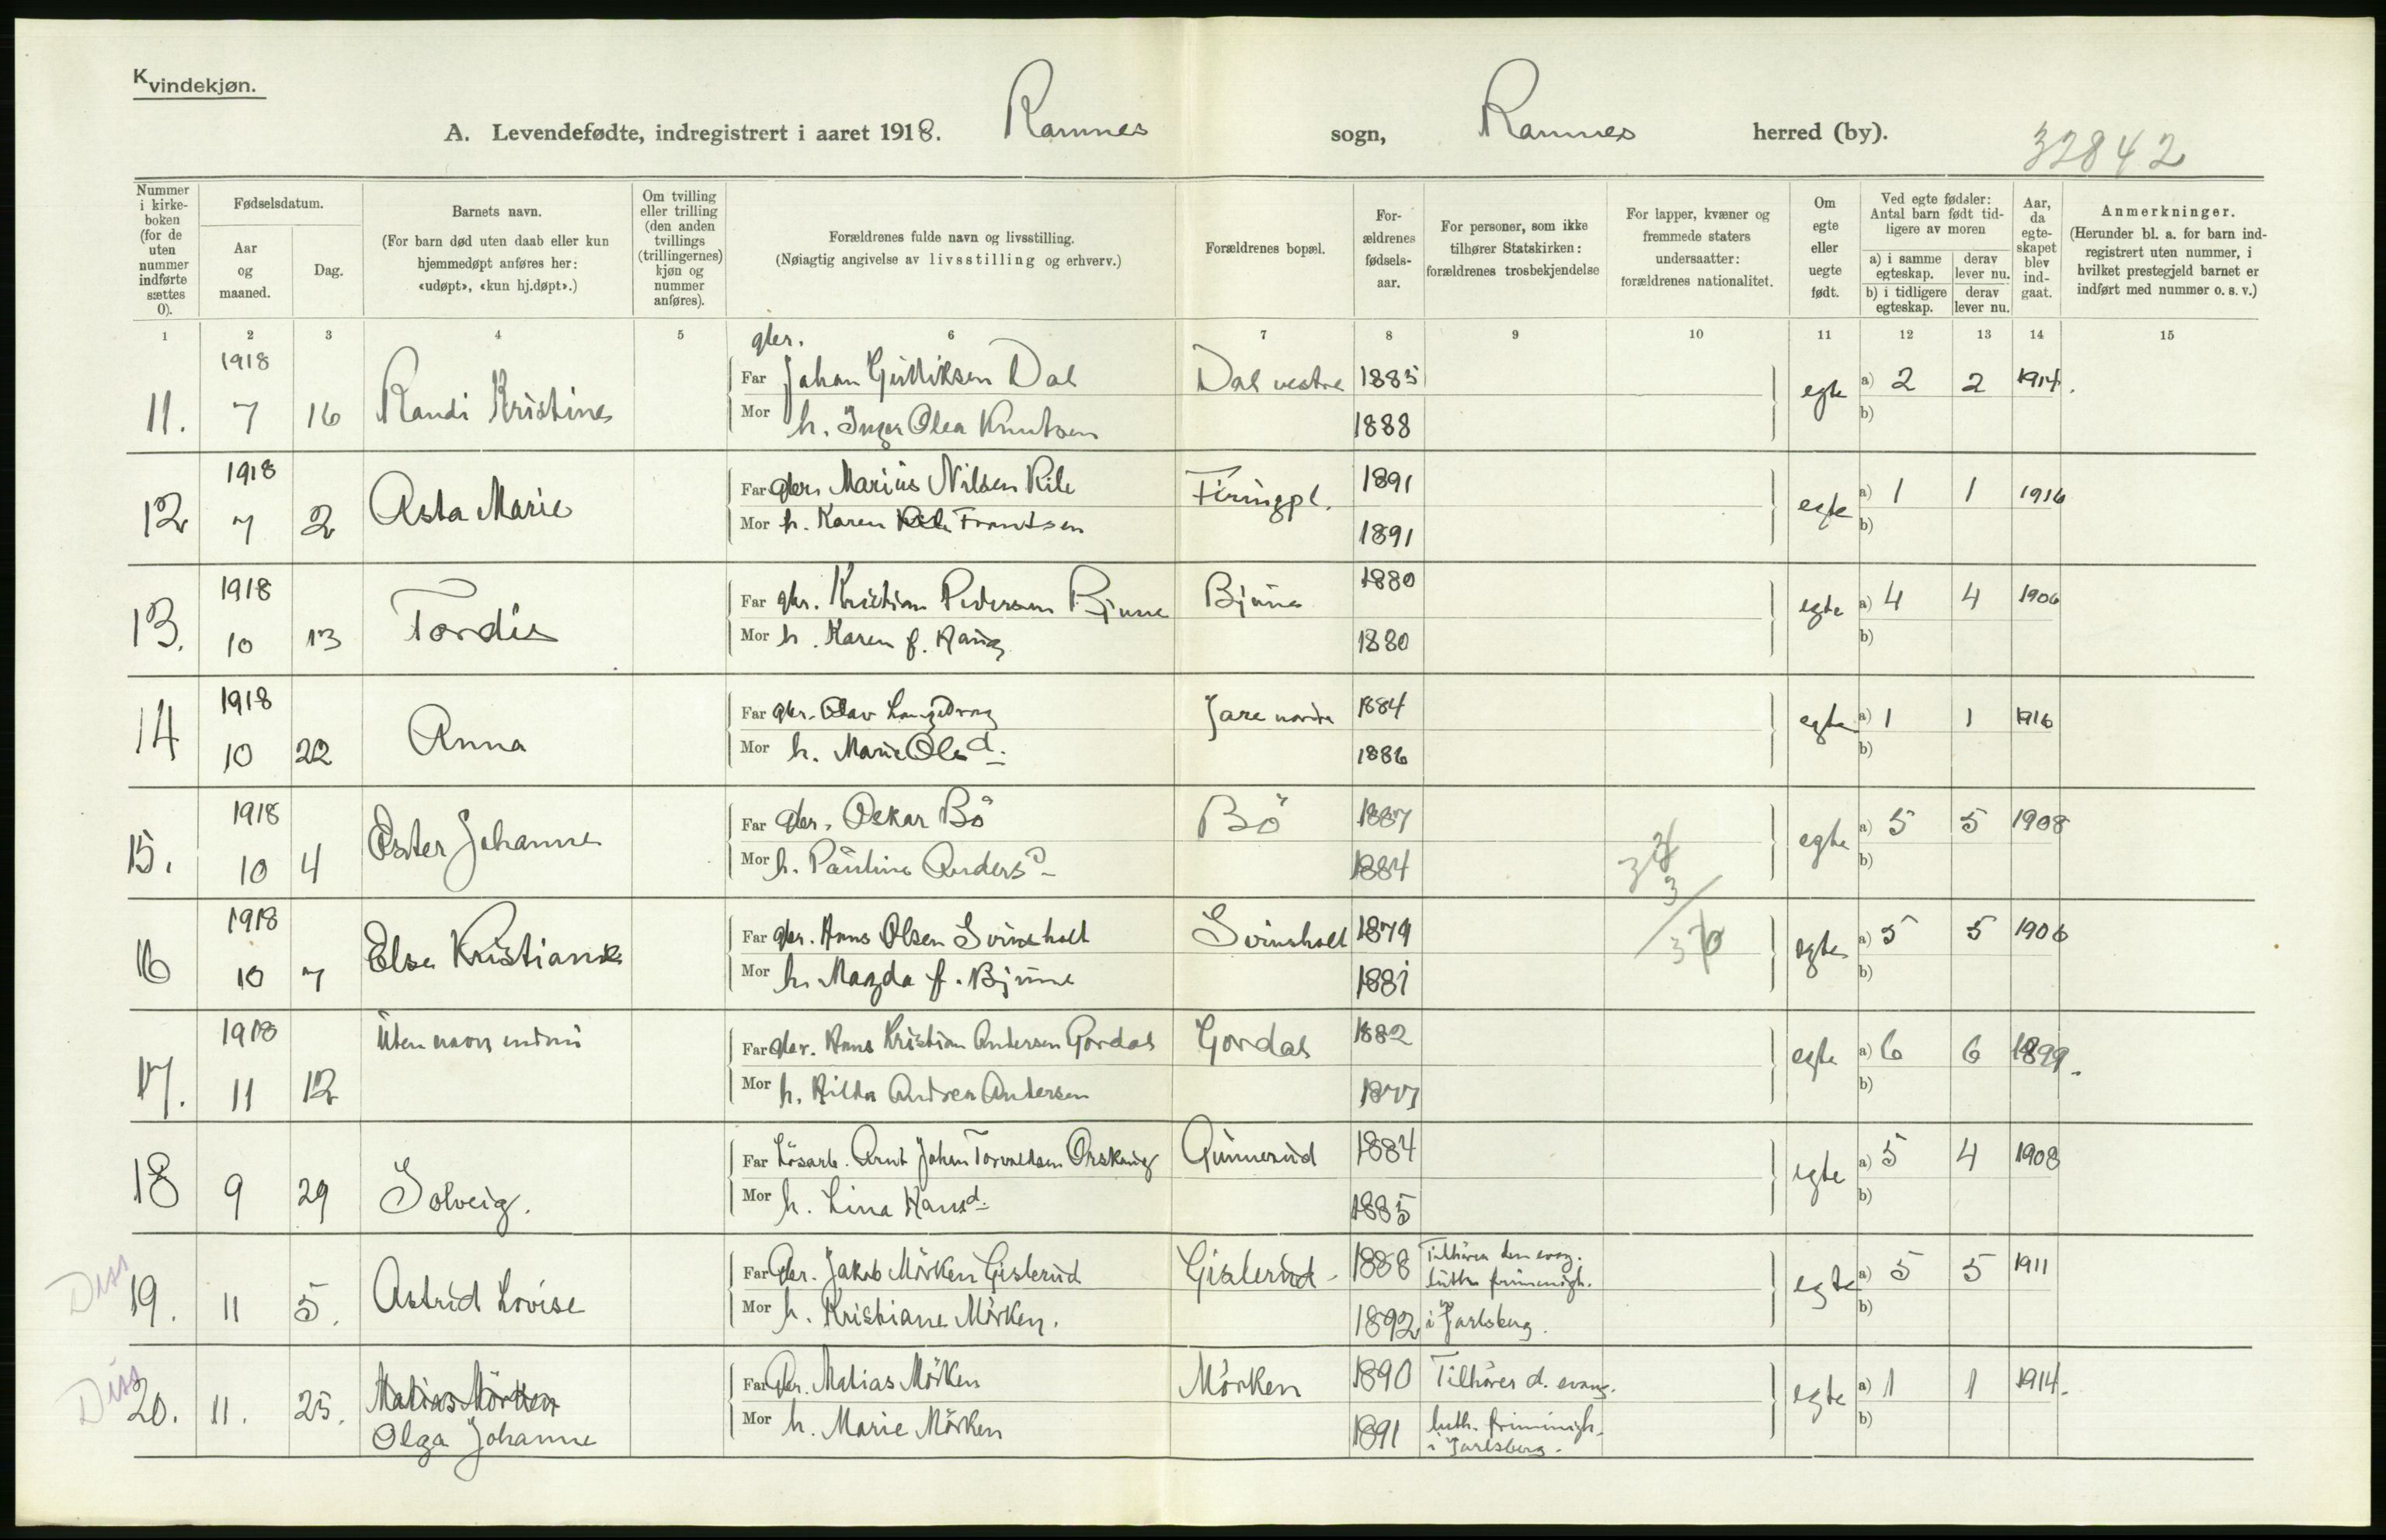 Kvindekjøn.
A. Levendefødte, indregistrert i aaret 1918. Ramnes sogn, Ramnes herred (by). 32842
Nummer i kirkeboken (for de uten nummer indførte sættes 0).
Fødselsdatum.
Aar og maaned.
Dag.
Barnets navn.
(For barn død uten daab eller kun hjemmedøpt anføres her: «udøpt», «kun hj.døpt».)
Om tvilling eller trilling (den anden tvillings (trillingernes) kjøn og nummer anføres).
Forældrenes fulde navn og livsstilling.
(Nøiagtig angivelse av livsstilling og erhverv.)
Forældrenes bopæl.
Forældrenes fødselsaar.
For personer, som ikke tilhører Statskirken: forældrenes trosbekjendelse
For lapper, kvæner og fremmede staters undersaatter: forældrenes nationalitet.
Om egte eller uegte født.
Ved egte fødsler: Antal barn født tidligere av moren
a) i samme egteskap. derav lever nu.
b) i tidligere egteskap. derav lever nu.
Aar, da egteskapet blev indgaat.
Anmerkninger.
(Herunder bl. a. for barn indregistrert uten nummer, i hvilket prestegjeld barnet er indført med nummer o. s. v.)
1 2 3 4 5 6 7 8 9 10 11 12 13 14 15
11. 1918 7 16 Randi Kristine
gbr.
Far Johan Gulliksen Dal Dal vestre 1885 egte a) 2 2 1914.
Mor h. Inger Olea Knutsen 1888 b)
12 1918 7 2 Asta Marie
Far gbr. Marius Nilsen Kile 1891 egte a) 1 1 1916
Mor h. Karen Frantsen 1891 b)
13. 1918 10 13 Tordis
Far gbr. Kristian Pedersen Bjune Bjune 1880 egte a) 4 4 1906
Mor h. Karen f. Haug 1880 b)
14 1918 10 22 Anna
Far gbr. Olav Jare nordre 1884 egte a) 1 1 1916
Mor h. Marie Olsd. 1886 b)
15. 1918 10 4 Ester Johanne
Far gbr. Oskar Bö Bö 1887 egte a) 5 5 1908
Mor h. Pauline Andersd 1884 b)
16 1918 10 7 Else Kristiane
Far gbr. Hans Olsen Svinsholt Svinsholt 1879 egte a) 5 5 1906
Mor h. Magda f. Bjune 1881 b)
17. 1918 11 12 Uten navn endnu
Far gbr. Hans Kristian Andersen Gordas Gordas 1882 egte a) 6 6 1899.
Mor h. Hilda Andrea Andersen 1877 b)
18 9 29 Solveig.
Far Lösarb. Arnt Johan Torvaldsen Gunnerud 1884 egte a) 5 4 1908
Mor h. Lina Hansd. 1885 b)
Diss
19. 11 5. Astrid Lovise
Far Gbr. Jakob Mörken Gislerud Gislerud 1888 Tilhörer den evag. luth. frimenigh. egte a) 5 5 1911
Mor h. Kristiane Mörken. 1892 i Jarlsberg. b)
Diss
20. 11. 25. Matias Mörken
Olga Johanne
Far Gbr. Matias Mörken Mörken 1890 Tilhörer d. evang. egte a) 1 1 1914.
Mor h. Marie Mörken 1891 luth. frimenigh. i Jarlsberg. b)